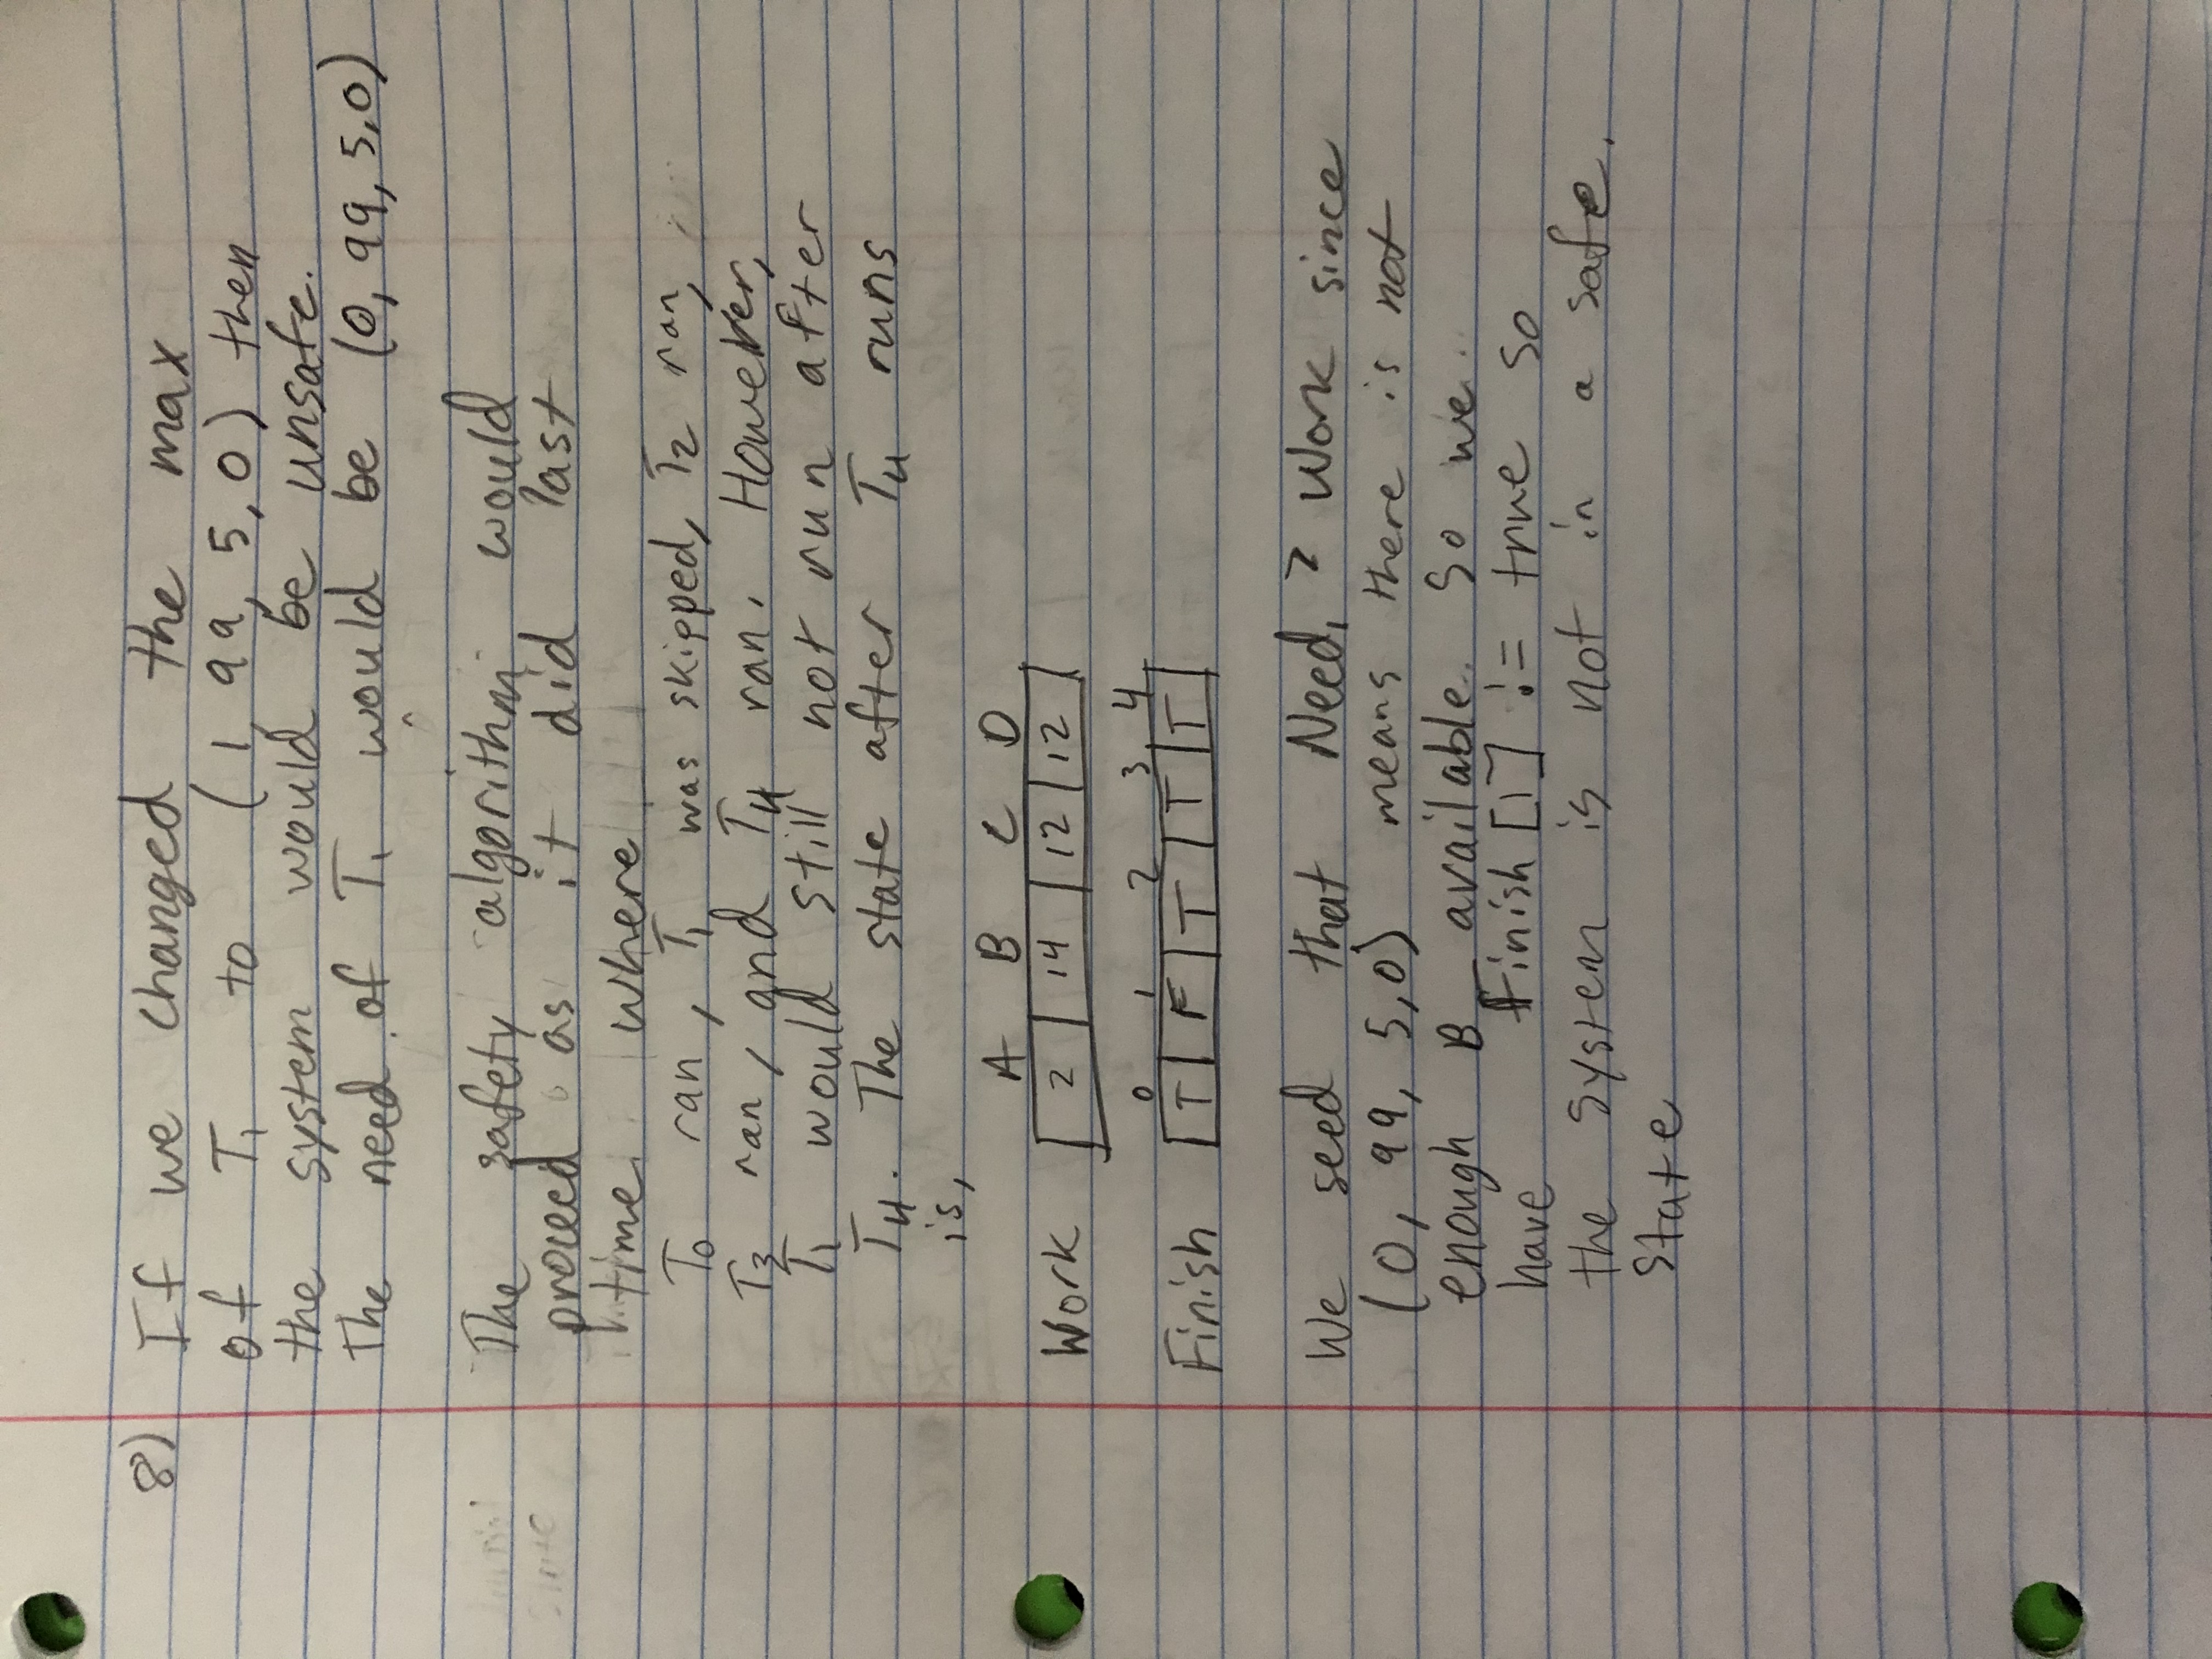 8) If we changed the max
of T1 to (1, 99, 5, 0) then
the system would be unsafe.
The need of T1 would be (0, 99, 5, 0)
The safety algorithm would
proceed as it did last
time where
T0 ran, T1 was skipped, T2 ran,
T3 ran, and T4 ran. However,
T1 would still not run after
T4. The state after T4 runs
is,
A B C D
Work 2 14 12 12
0 1 2 3 4
Finish T F T T T
We seed that Need1 > Work since
(0, 99, 5, 0) means there is not
enough B available. So we
have Finish [1] != true so
the system is not in a safe.
state